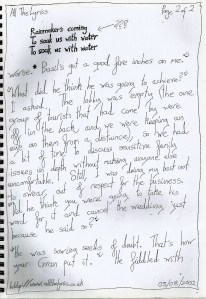 All The Lyrics
Page 2 of 2
Rainmakers coming
To soak us with water
To soak us with water
worse. Brad's got a good five inches on me.
"What did he think he was going to achieve?"
I asked. The lobby was empty (the one
group of tourists that I had come by were
off in the back, and we were keeping an
eye on them from a distance), so we had
a bit of time to discuss sensitive family
issues in depth without making anyone else
uncomfortable. Still, I was doing my best not
to swear, out of respect for the business.
"Did he think you were going to take his
word for it and cancel the wedding just
because he said so?"
"He was sowing seeds of doubt. That's how
your Gran put it." He fiddled with
http://www.allthelyrics.co.uk
03/08/2002